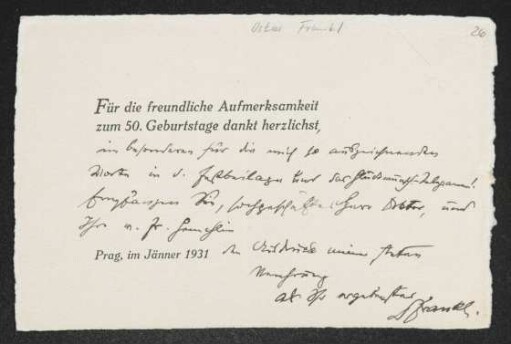 Oskar Frankl
26
Für die freundliche Aufmerksamkeit
zum 50. Geburtstage dankt herzlichst,
im besonderen für die mich so auszeichnenden
Worte in d. Festbeilage und das
Empfangen Sie, hochgeschätzter Herr Doktor, und
Ihre w. Fr. Gemahlin
Prag, im Jänner 1931 den Ausdruck meiner steten
Verehrung
als Ihr ergebenster
Frankl.